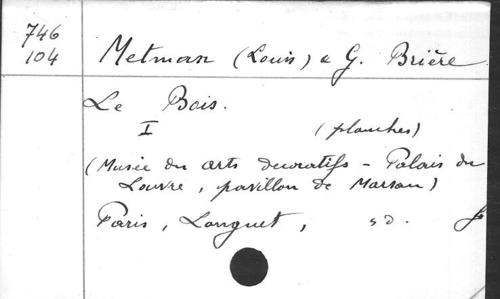 746
104
Metman (Louis) & G. Brière
Le Bois.
I (planches)
(Musée des arts decoratifs - Palais du
Louvre, pavillon de Marsan)
Paris, Longuet, s d.